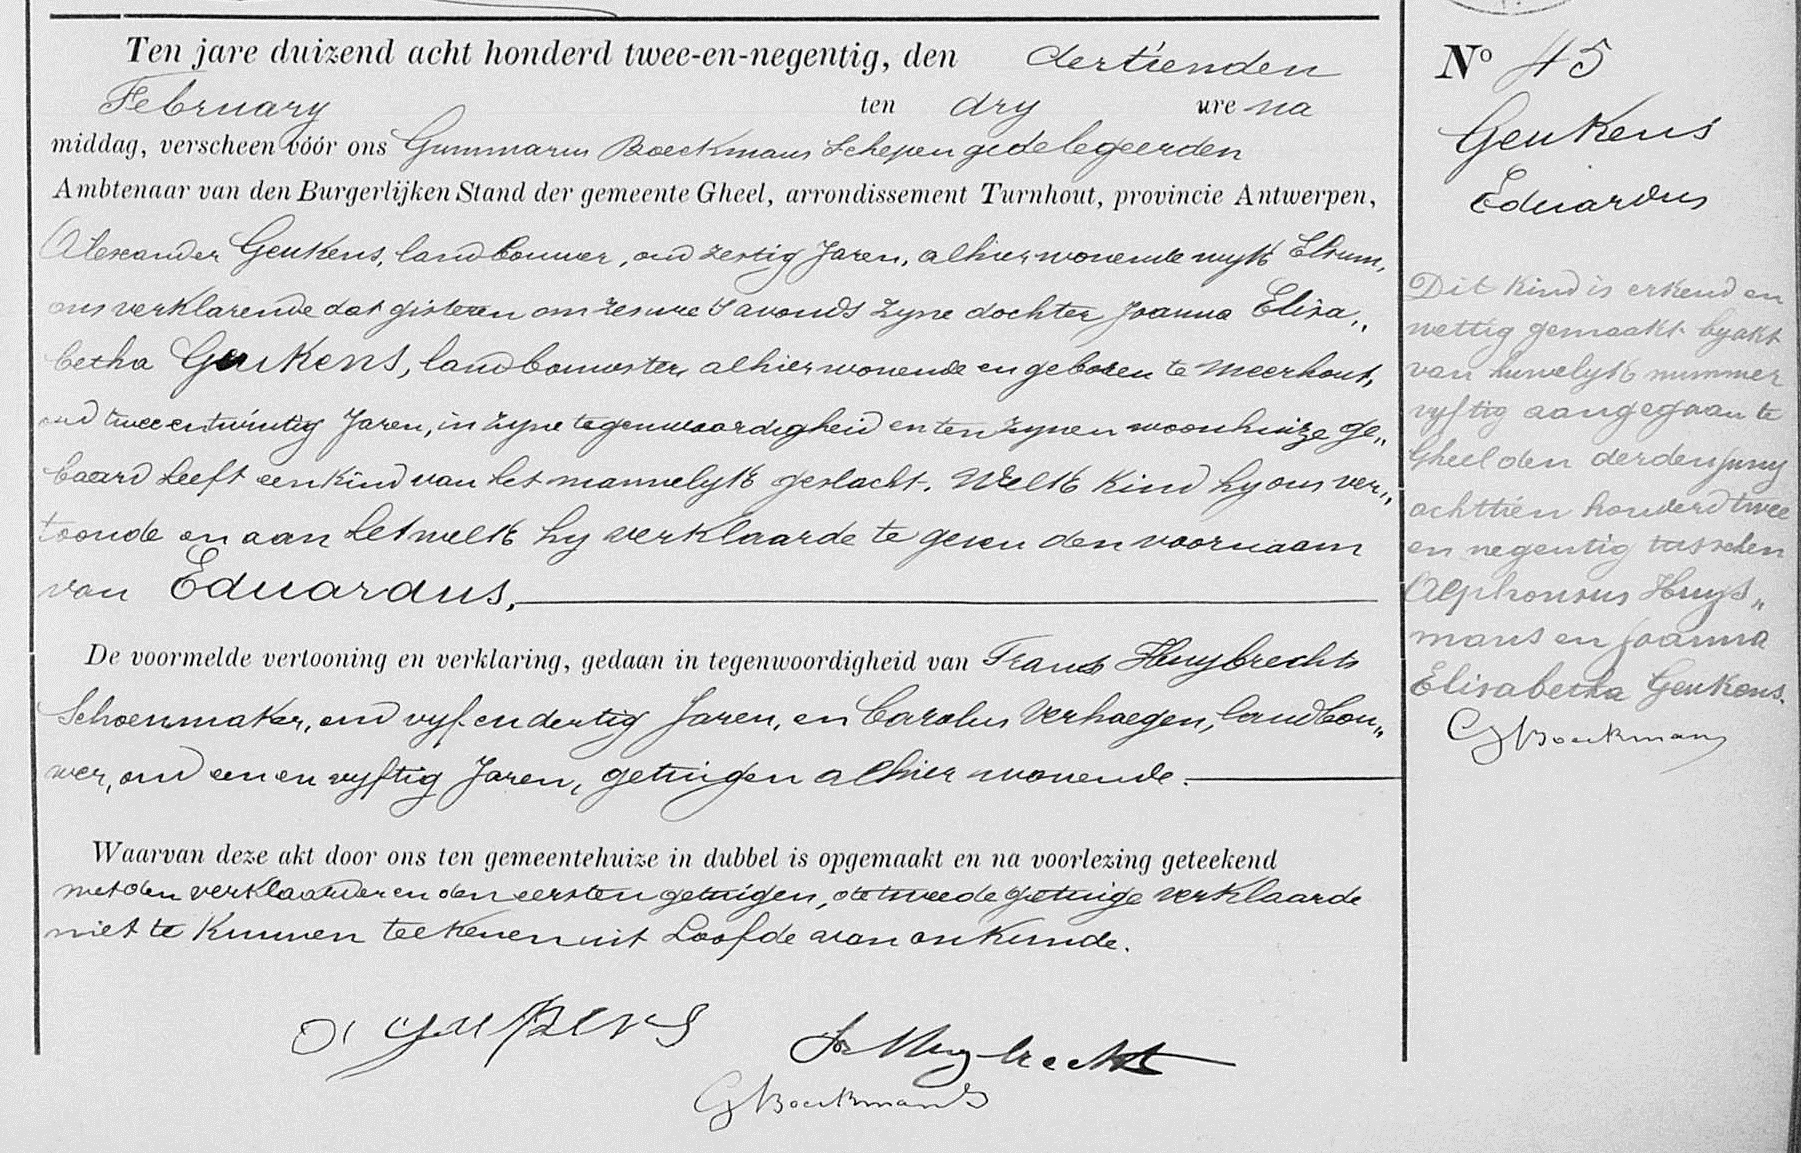 Ten jare duizend acht honderd twee-en-negentig, den dertienden
February ten dry ure na
middag, verscheen vóór ons Gummarus Boeckmans Schepen gedelegeerden
Ambtenaar van den Burgerlijken Stand der gemeente Gheel, arrondissement Turnhout, provincie Antwerpen,
Alexander Geukens, landbouwer, oud zestig Jaren, alhier wonende wyk Elsum,
ons verklarende dat gisteren om zes ure S avonds zyne dochter Joanna Elisa„
betha Geukens, landbouwster, alhier wonende en geboren te Meerhout,
oud twee en twintig Jaren, in zyne tegenwoordigheid en ten zynen woonhuize ge„
baard heeft een kind van het mannelyk geslacht. Welk kind hy ons ver„
toonde en aan hetwelk hy verklaarde te geven den voornaam
van Eduardus.
De voormelde vertooning en verklaring, gedaan in tegenwoordigheid van Frans Huybrechts
Schoenmaker, oud vyf en dertig Jaren, en Carolus Verhaegen, landbou„
wer, oud een en vyftig Jaren, getuigen alhier wonende.
Waarvan deze akt door ons ten gemeentehuize in dubbel is opgemaakt en na voorlezing geteekend
met den verklaarder en den eersten getuigen, de tweede getuige verklaarde
niet te kunnen teekenen uit hoofde van onkunde.
Geukens
Huybrechts
G Boeckmans
Nº 45
Geukens
Eduardus
Dit kind is erkend en
wettig gemaakt by akt
van huwelyk nummer
vyftig aangegaan te
Gheel den derden Juny
achttien honderd twee
en negentig tusschen
Alphonsus Huys„
mans en Joanna
Elisabetha Geukens.
G Boeckmans